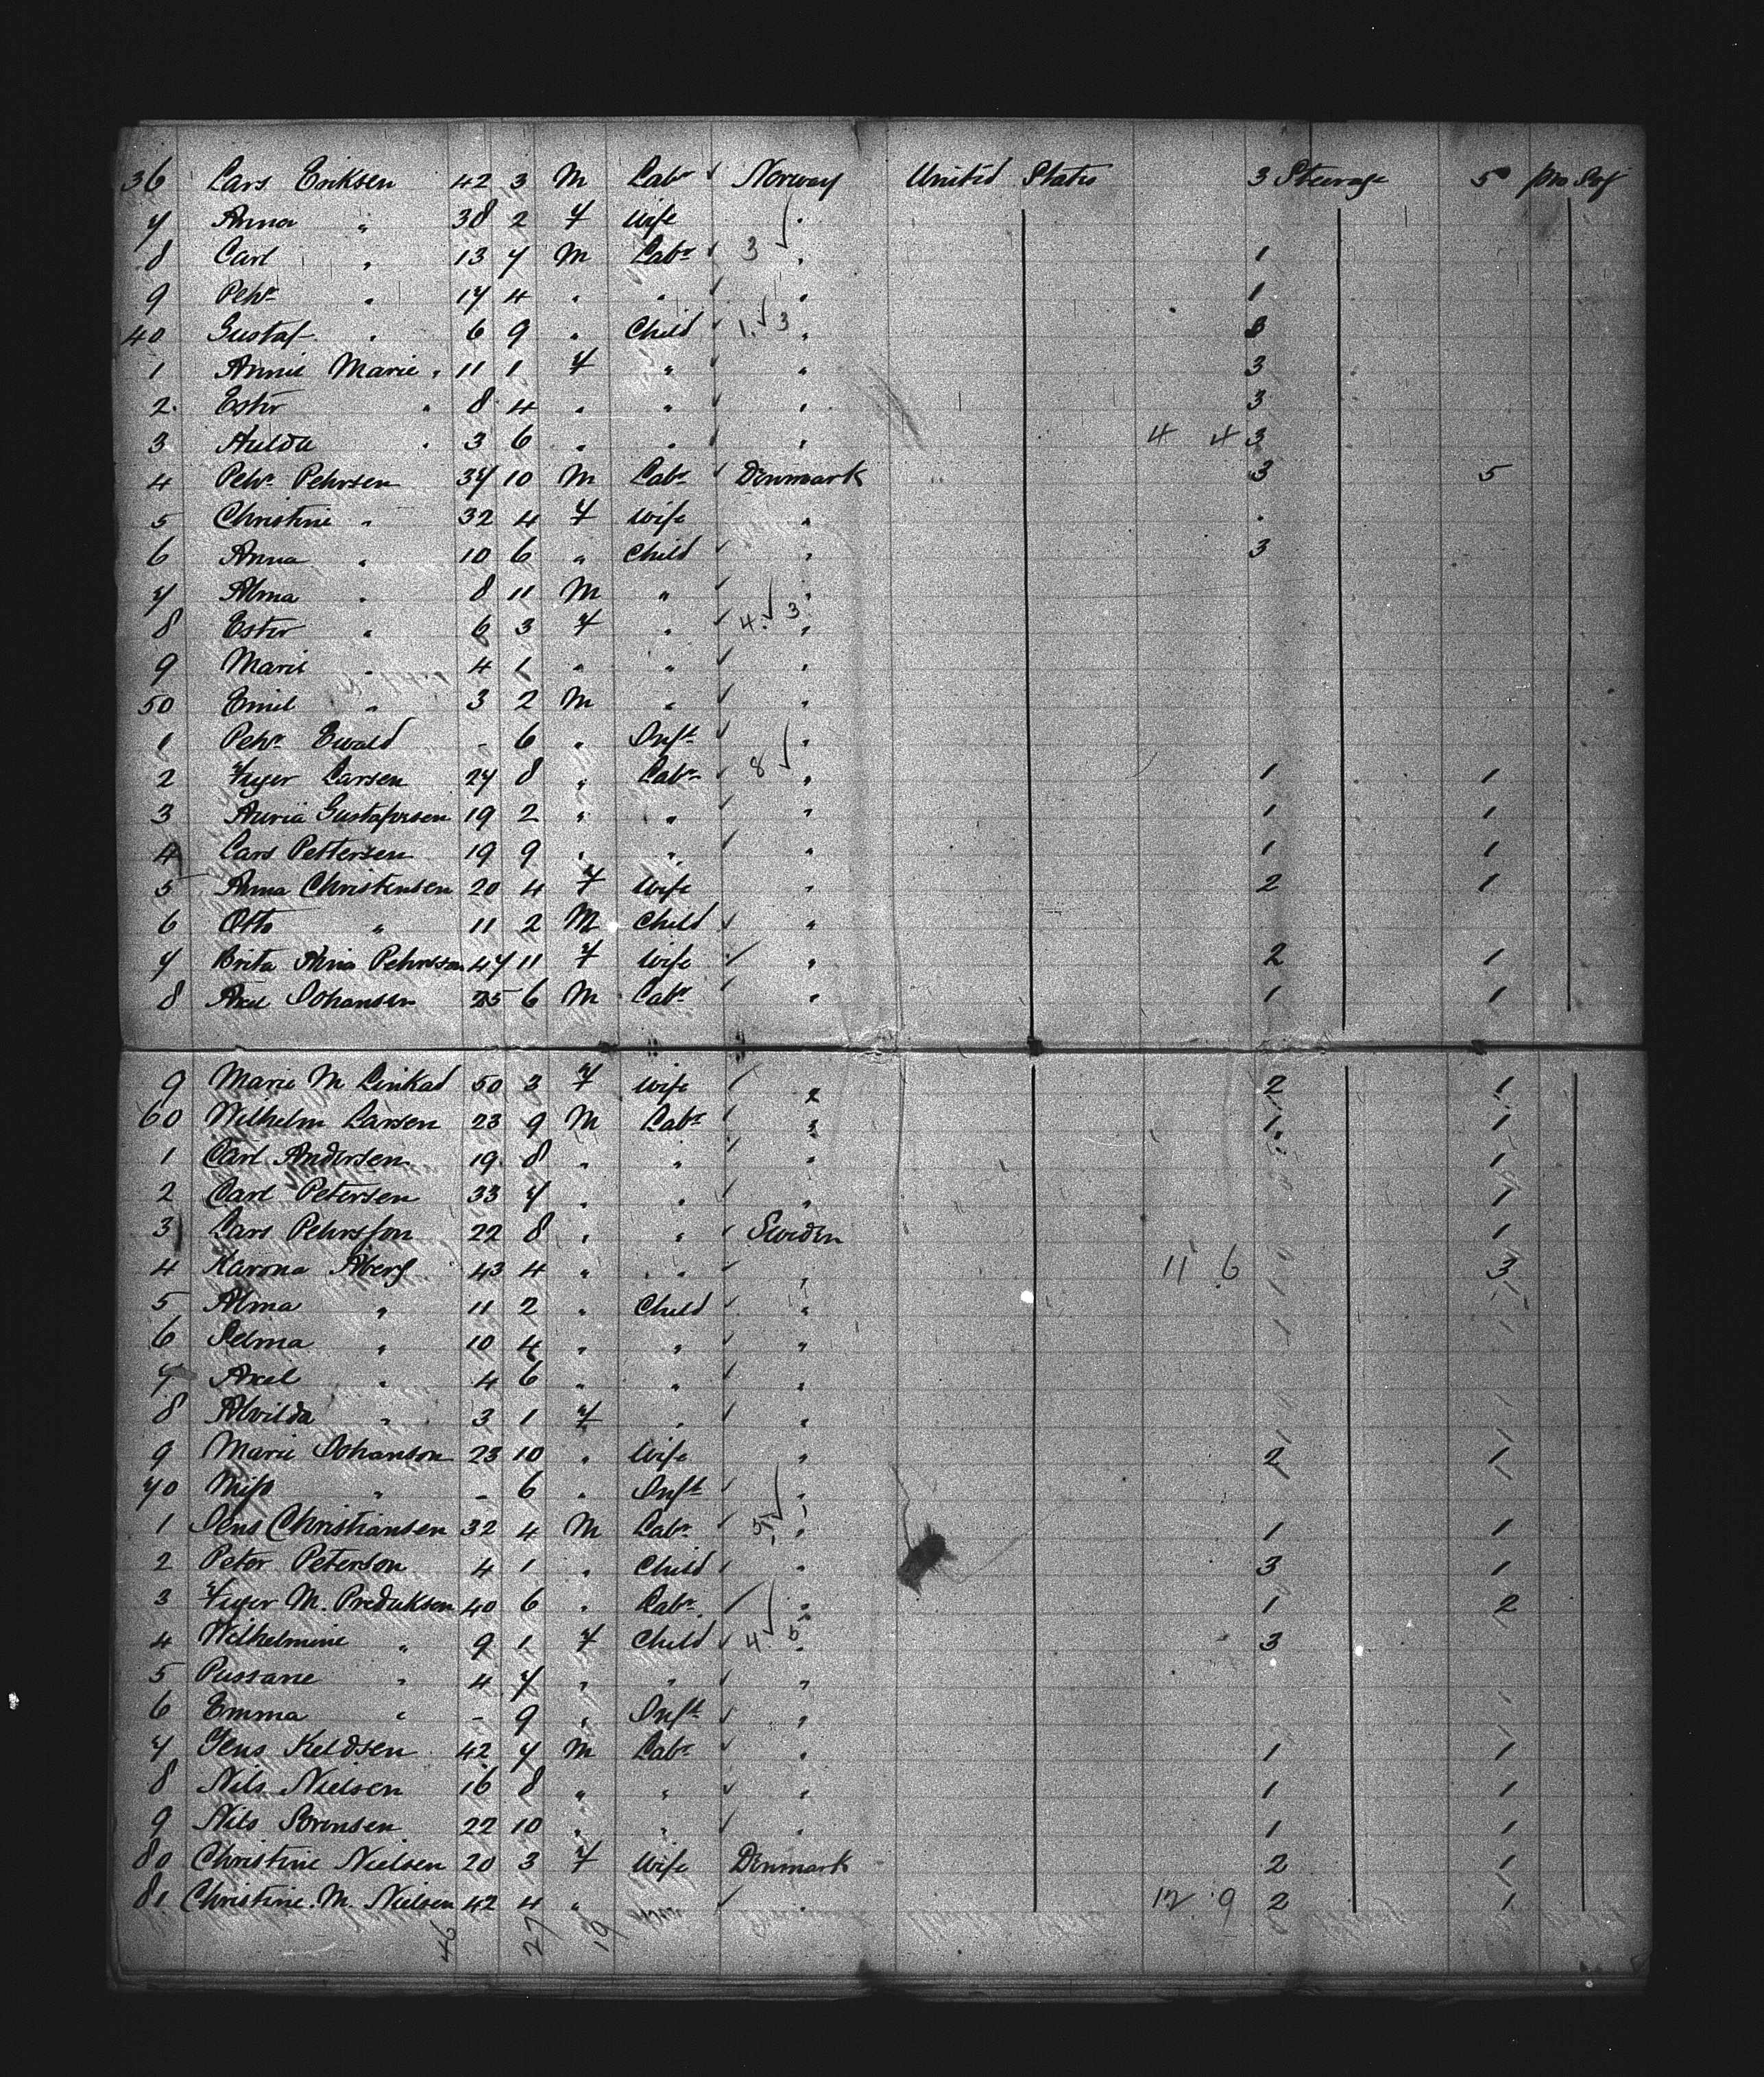 36 Lars Eriksen 42 3 M Labr Norway United States 3 Steerage 5 pro Svf
7 Anna " 38 2 F Wife "
8 Carl " 13 7 M Labr 3 " 1
9 Pehr " 17 4 " " " 1
40 Gustaf " 6 9 " Child 1. 3 " 3
1 Annie Marie " 11 1 F " " 3
2 Ester " 8 4 " " " 3
3 Hulda " 3 6 " " " 4 4 3
4 Pehr Pehrsen 37 10 M Labr Denmark 3 5
5 Christine " 32 4 F Wife " "
6 Anna " 10 6 " Child " 3
7 Alma " 8 11 M " "
8 Ester " 6 3 F " 4. 3 "
9 Marie " 4 1 " " "
50 Emil " 3 2 M " "
1 Pehr Ewald - 6 " Inft "
2 Larsen 27 8 " Labr 8 " 1 1
3 Gustafvsen 19 2 " " " 1 1
4 Lars Pettersen 19 9 " " " 1 1
5 Anna Christensen 20 4 F Wife " 2 1
6 Otto " 11 2 M Child "
7 Brita Pehrsson 47 11 F Wife " 2 1
8 Axel Johansen 25 6 M Labr " 1 1
9 Marie M Linkad 50 3 F Wife " 2 1
60 Wilhelm Larsen 23 9 M Labr " 1 1
1 Carl Andersen 19 8 " " " 1
2 Carl Petersen 33 7 " " " 1
3 Lars Pehrsson 22 8 " " Sweden 1
4 Karona Aberg 43 4 " " " 11 6 3
5 Alma " 11 2 " Child "
6 Selma " 10 4 " " "
7 Axel " 4 6 " " "
8 Alvilda " 3 1 F " "
9 Marie Johanson 23 10 " Wife " 2 1
70 Miss " - 6 " Inft "
1 Jens Christiansen 32 4 M Labr 5 " 1 1
2 Peter Peterson 4 1 " Child " 3 1
3 M. 40 6 " Labr " 1 2
4 Wilhelmine " 9 1 F Child 4 5 " 3
5 " 4 7 " " "
6 Emma " - 9 " Inft "
7 Jens Keldsen 42 7 M Labr " 1 1
8 Nils Nielsen 16 8 " " " 1 1
9 Nils Sorensen 22 10 " " " 1 1
80 Christine Nielsen 20 3 F Wife Denmark 2 1
81 Christine M. Nielsen 42 4 " " 12 9 2 1
46 27 19